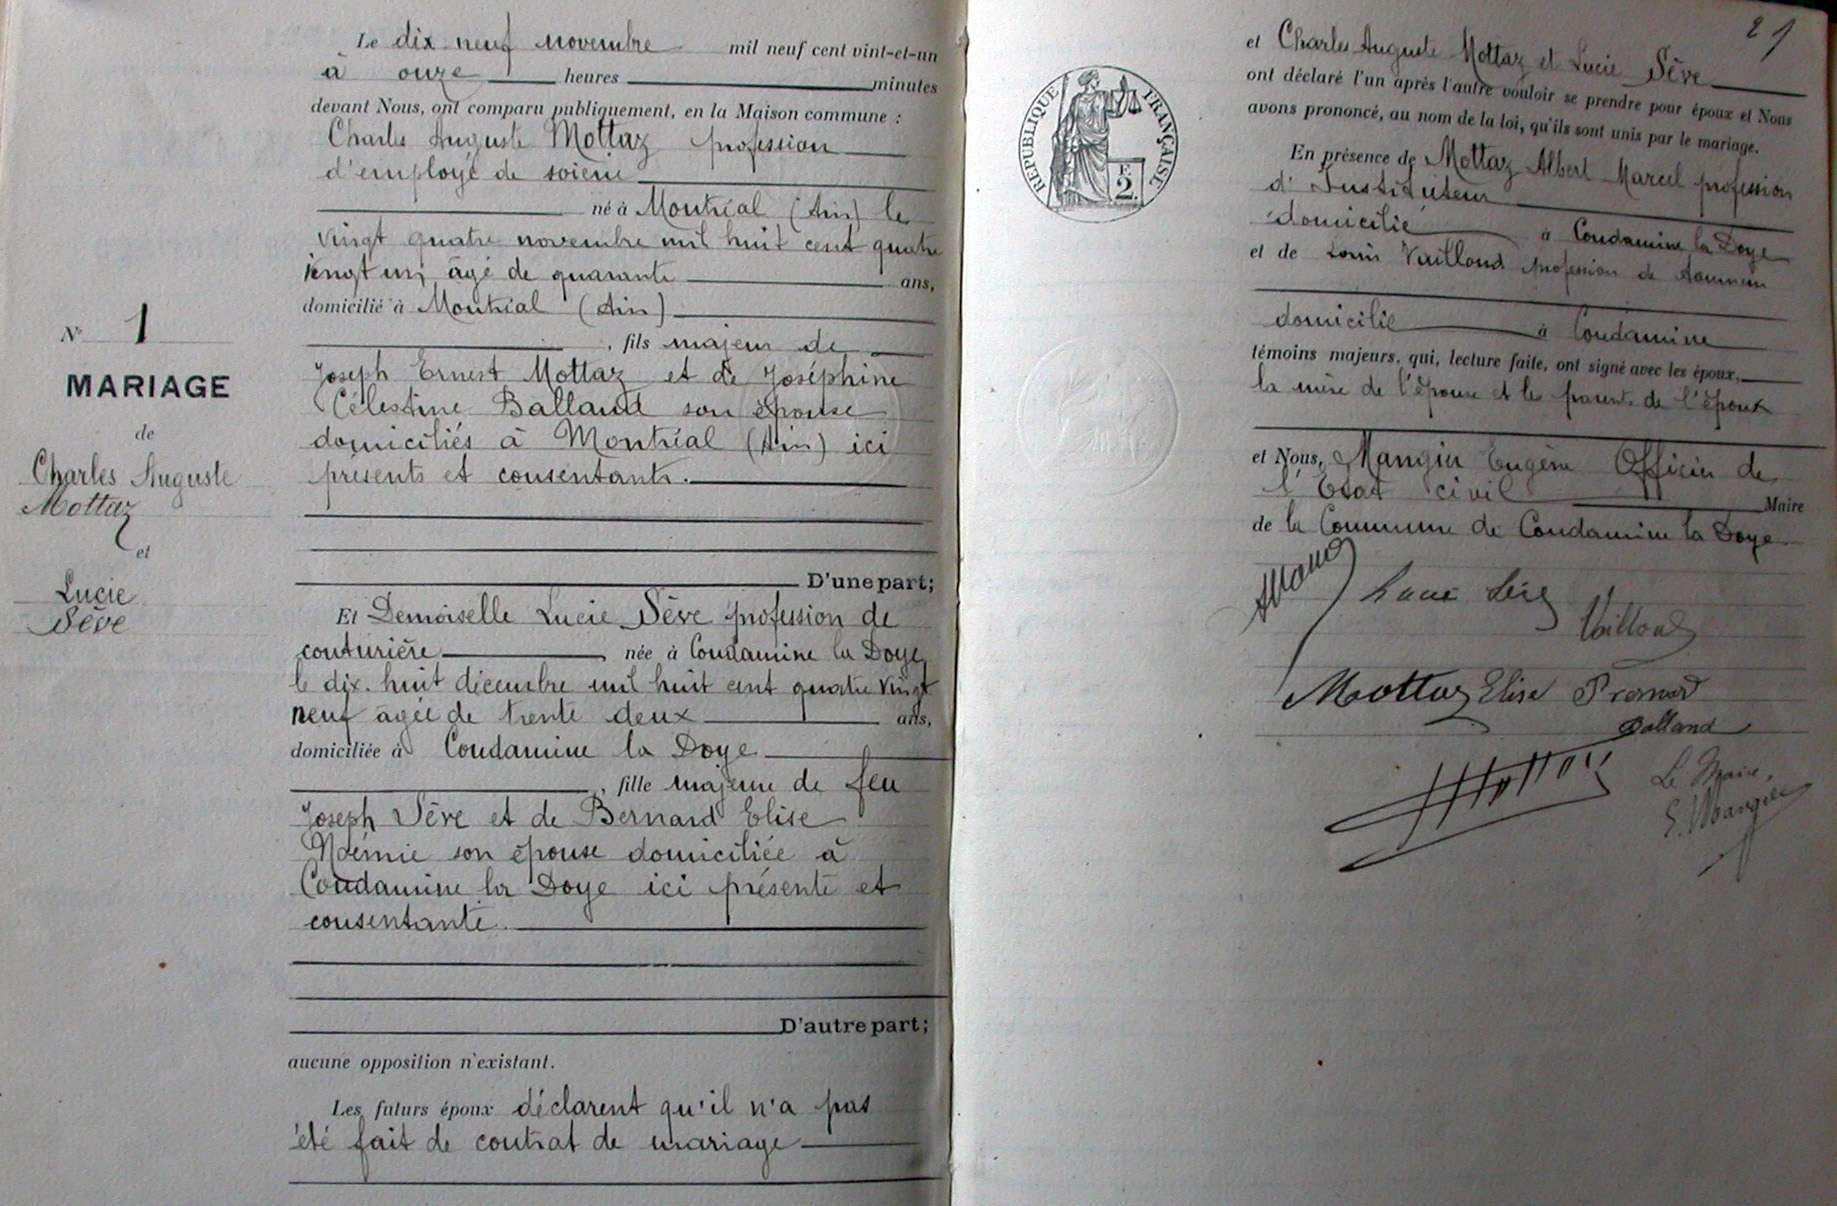 Le dix neuf novembre mil neuf cent vint-et-un
à onze heures minutes
devant Nous, ont comparu publiquement, en la Maison commune :
Charles Auguste Mottaz profession
d'employé de soierie
né à Montréal (Ain) le
vingt quatre novembre mil huit cent quatre
vingt un, âgé de quarante ans,
domicilié à Montréal (Ain)
, fils majeur de
Joseph Ernest Mottaz et de Joséphine
Célestine Balland son épouse
domiciliés à Montréal (Ain) ici
présents et consentants.
D'une part;
Et Demoiselle Lucie Sève profession de
couturière, née à Condamine la Doye,
le dix-huit décembre mil huit cent quatre vingt
neuf âgée de trente deux ans,
domiciliée à Condamine la Doye
, fille majeure de feu
Joseph Sève et de Bernard Elise
Noémie son épouse domiciliée à
Condamine la Doye ici présente et
consentante.
D'autre part;
aucune opposition n'existant.
Les futurs époux déclarent qu'il n'a pas
été fait de contrat de mariage
N° 1
MARIAGE
de
Charles Auguste
Mottaz
et
Lucie
Sève
RÉPUBLIQUE FRANÇAISE
F.
2.
et Charles Auguste Mottaz et Lucie Sève
ont déclaré l'un après l'autre vouloir se prendre pour époux et Nous
avons prononcé, au nom de la loi, qu'ils sont unis par le mariage.
En présence de Mottaz Albert Marcel profession
d'Instituteur
domicilié à Condamine la Doye
et de Louis Vailloud profession de
domicilié à Condamine
témoins majeurs, qui, lecture faite, ont signé avec les époux,
la mère de l'épouse et les parents de l'époux
et Nous, Mangin Eugène Officier de
l'Etat civil Maire
de la Commune de Condamine la Doye.
Vailloud
Mottaz Elise Bernard
Balland
Le Maire,
E. Mangin